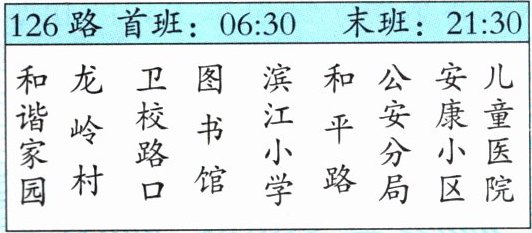 126 路 首班：06:30 末班：21:30
和谐家园
龙岭村
卫校路口
图书馆
滨江小学
和平路
公安分局
安康小区
儿童医院